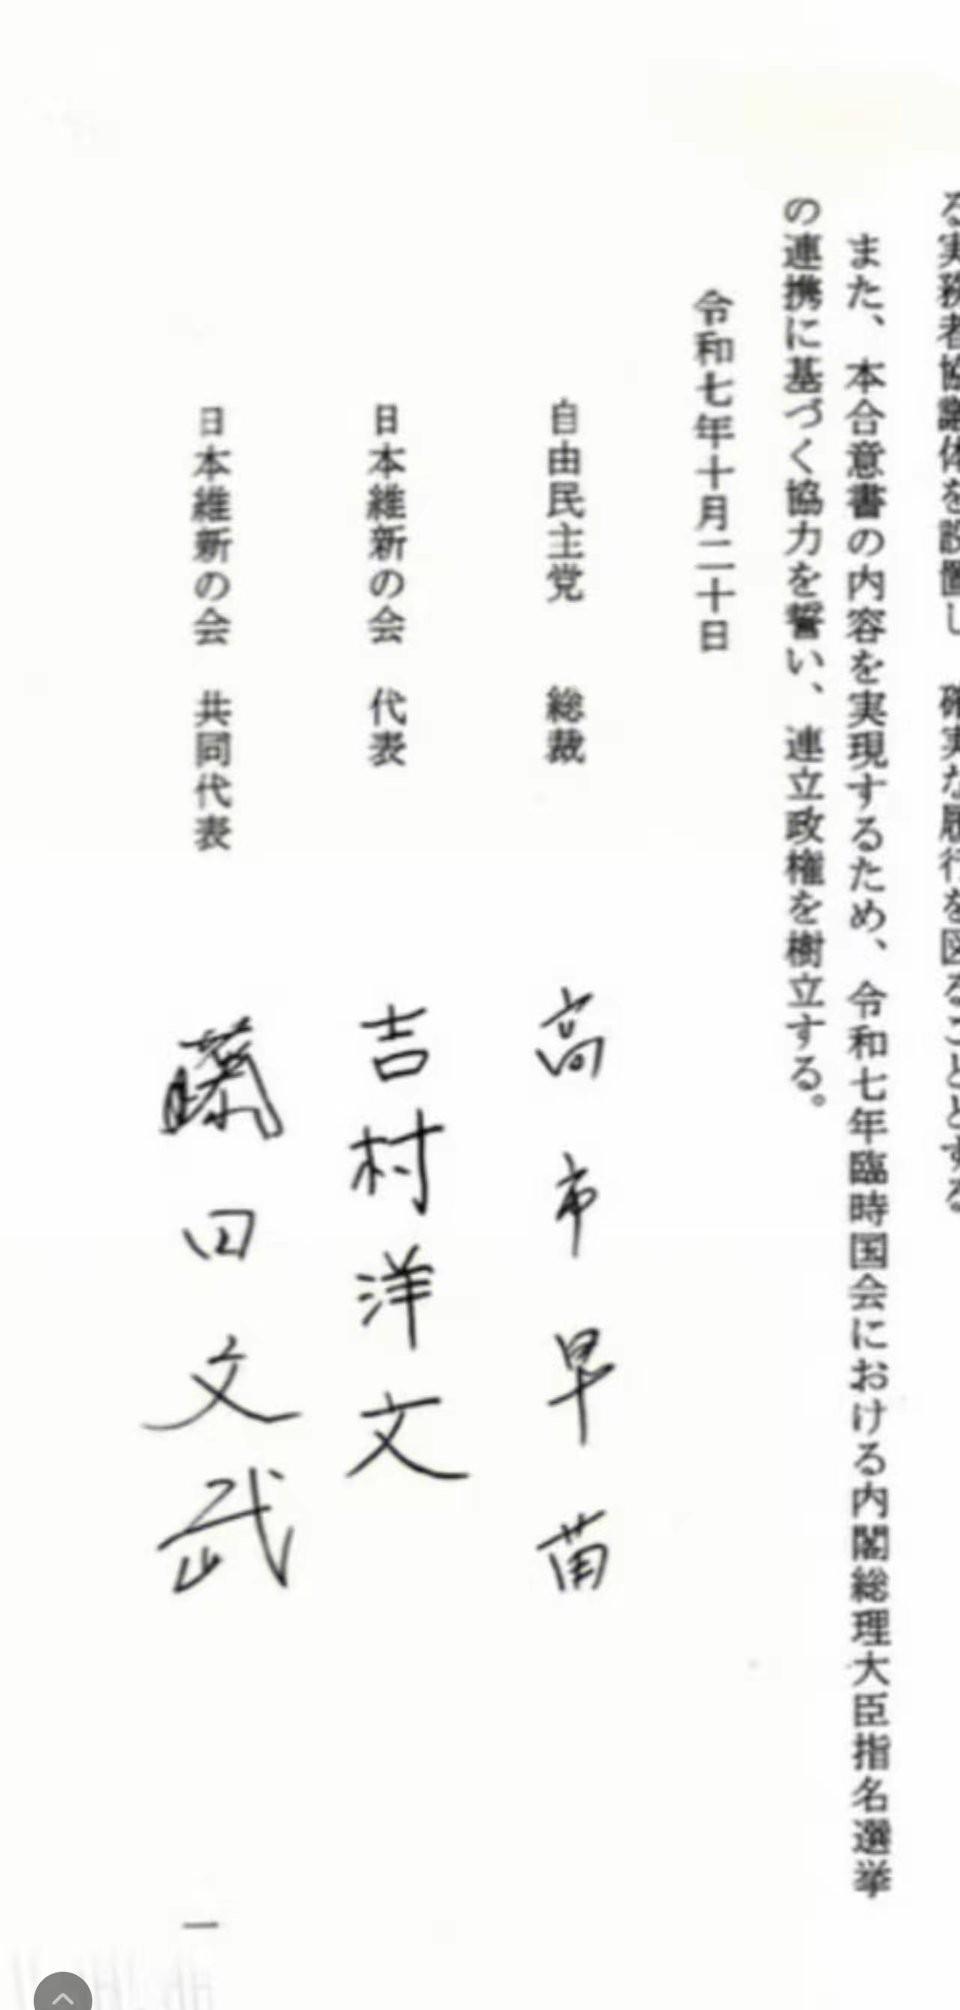 る実務者協議体を設置し、確実な履行を図ることとする
また、本合意書の内容を実現するため、令和七年臨時国会における内閣総理大臣指名選挙
の連携に基づく協力を誓い、連立政権を樹立する。
令和七年十月二十日
自由民主党 総裁 高市早苗
日本維新の会 代表 吉村洋文
日本維新の会 共同代表 藤田文武
一